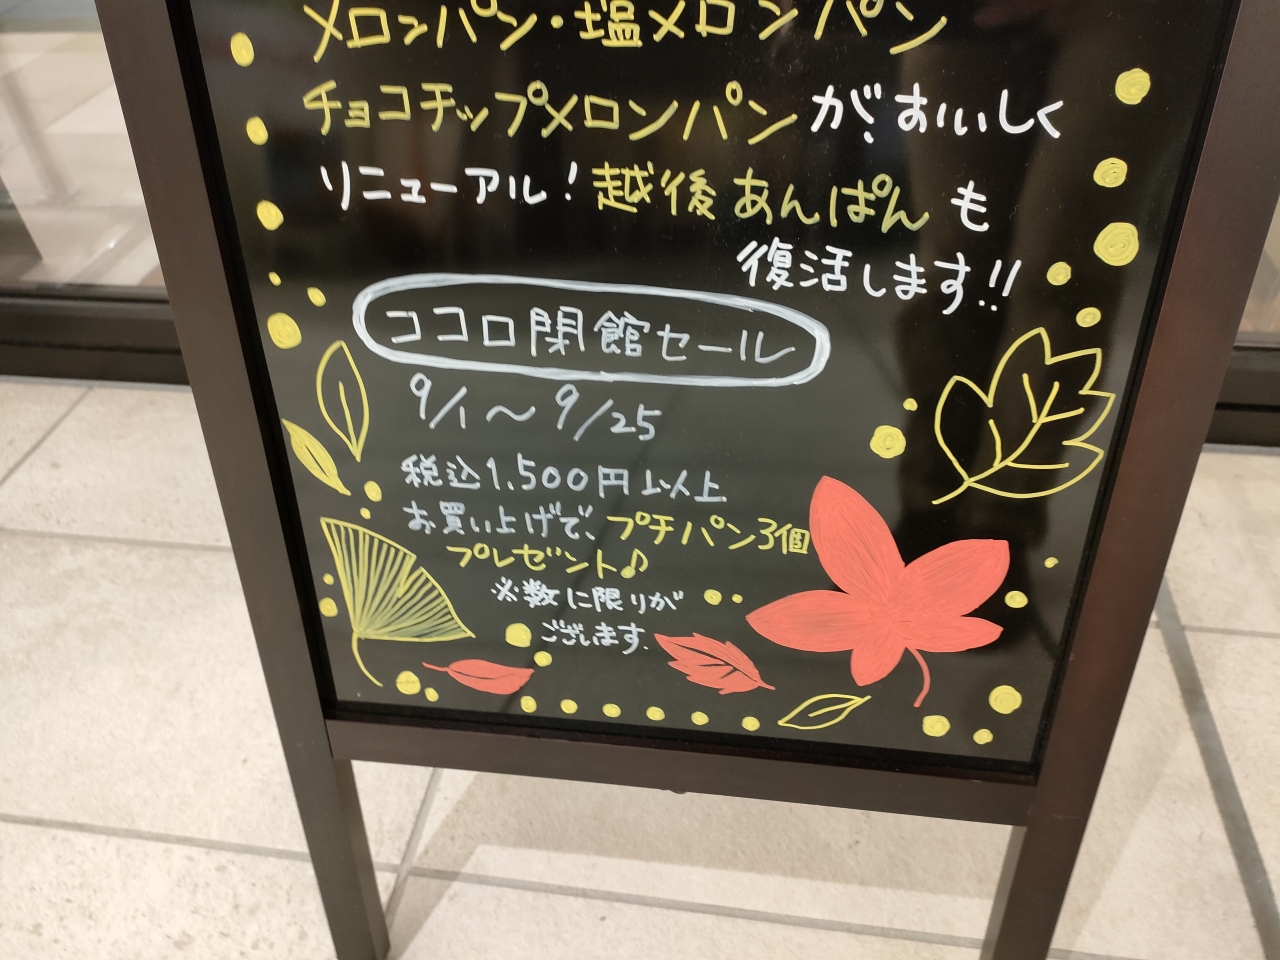 メロンパン・塩メロンパン
チョコチップメロンパンがおいしく
リニューアル!越後あんぱんも
復活します!!
ココロ閉館セール
9/1〜9/25
税込1,500円以上
お買い上げで、プチパン3個
プレゼント♪
※数に限りが
ございます.